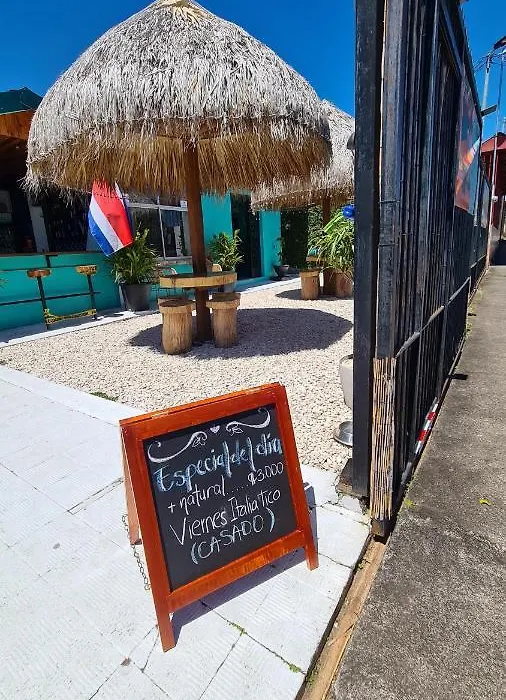 Especial del día
+ natural.... ₡3.000
Viernes Italia tico
(CASADO)